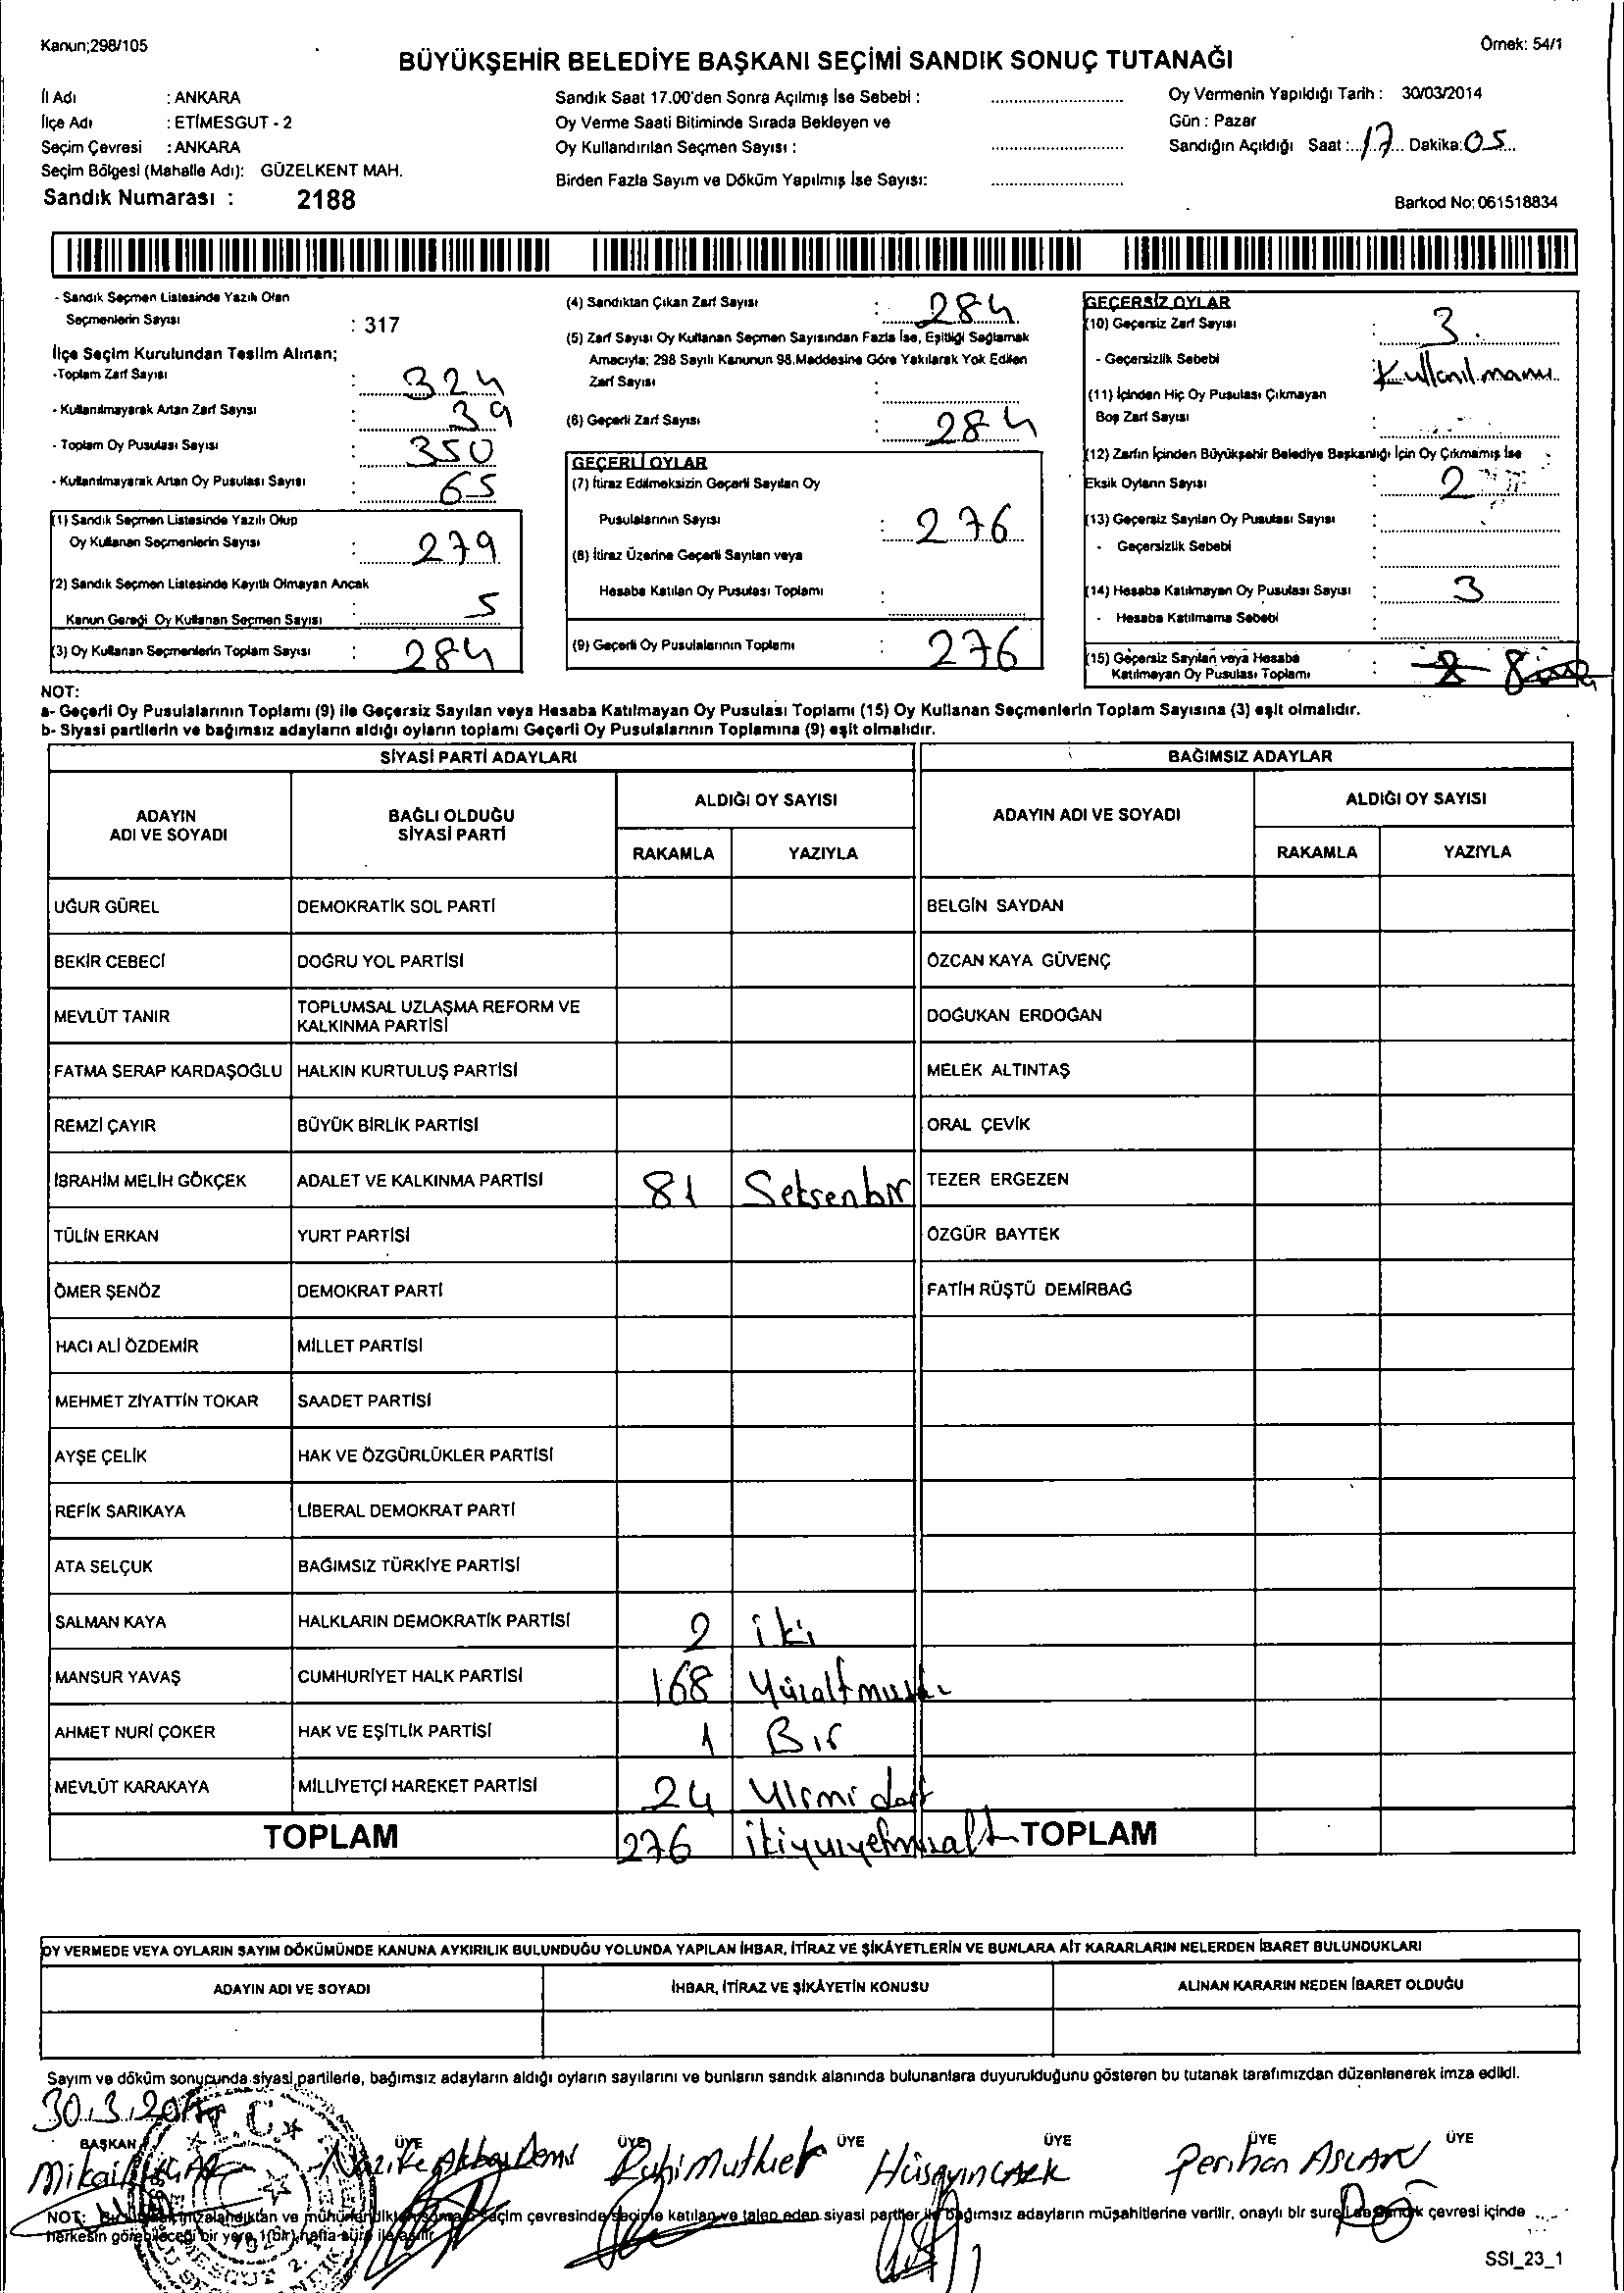 Kanun;298/105
Örnek: 54/1
BÜYÜKŞEHİR BELEDİYE BAŞKANI SEÇİMİ SANDIK SONUÇ TUTANAĞI
İl Adı : ANKARA
İlçe Adı : ETİMESGUT - 2
Seçim Çevresi : ANKARA
Seçim Bölgesi (Mahalle Adı): GÜZELKENT MAH.
Sandık Numarası : 2188
Sandık Saat 17.00'den Sonra Açılmış İse Sebebi :
Oy Verme Saati Bitiminde Sırada Bekleyen ve
Oy Kullandırılan Seçmen Sayısı :
Birden Fazla Sayım ve Döküm Yapılmış İse Sayısı:
Oy Vermenin Yapıldığı Tarih : 30/03/2014
Gün : Pazar
Sandığın Açıldığı Saat : 17 Dakika: 05
Barkod No: 061518834
- Sandık Seçmen Listesinde Yazılı Olan
Seçmenlerin Sayısı : 317
İlçe Seçim Kurulundan Teslim Alınan;
-Toplam Zarf Sayısı : 324
- Kullanılmayarak Artan Zarf Sayısı : 39
- Toplam Oy Pusulası Sayısı : 350
- Kullanılmayarak Artan Oy Pusulası Sayısı : 65
(1) Sandık Seçmen Listesinde Yazılı Olup
Oy Kullanan Seçmenlerin Sayısı : 279
(2) Sandık Seçmen Listesinde Kayıtlı Olmayan Ancak
Kanun Gereği Oy Kullanan Seçmen Sayısı : 5
(3) Oy Kullanan Seçmenlerin Toplam Sayısı : 284
(4) Sandıktan Çıkan Zarf Sayısı : 284
(5) Zarf Sayısı Oy Kullanan Seçmen Sayısından Fazla İse, Eşitliği Sağlamak
Amacıyla; 298 Sayılı Kanunun 98.Maddesine Göre Yakılarak Yok Edilen
Zarf Sayısı :
(6) Geçerli Zarf Sayısı : 284
GEÇERLİ OYLAR
(7) İtiraz Edilmeksizin Geçerli Sayılan Oy
Pusulalarının Sayısı : 276
(8) İtiraz Üzerine Geçerli Sayılan veya
Hesaba Katılan Oy Pusulası Toplamı :
(9) Geçerli Oy Pusulalarının Toplamı : 276
GEÇERSİZ OYLAR
(10) Geçersiz Zarf Sayısı : 3
- Geçersizlik Sebebi : Kullanılmamı
(11) İçinden Hiç Oy Pusulası Çıkmayan
Boş Zarf Sayısı :
(12) Zarfın İçinden Büyükşehir Belediye Başkanlığı İçin Oy Çıkmamış İse
Eksik Oyların Sayısı : 2
(13) Geçersiz Sayılan Oy Pusulası Sayısı :
- Geçersizlik Sebebi :
(14) Hesaba Katılmayan Oy Pusulası Sayısı : 3
- Hesaba Katılmama Sebebi :
(15) Geçersiz Sayılan veya Hesaba
Katılmayan Oy Pusulası Toplamı : 8
NOT:
a- Geçerli Oy Pusulalarının Toplamı (9) ile Geçersiz Sayılan veya Hesaba Katılmayan Oy Pusulası Toplamı (15) Oy Kullanan Seçmenlerin Toplam Sayısına (3) eşit olmalıdır.
b- Siyasi partilerin ve bağımsız adayların aldığı oyların toplamı Geçerli Oy Pusulalarının Toplamına (9) eşit olmalıdır.
SİYASİ PARTİ ADAYLARI BAĞIMSIZ ADAYLAR
ADAYIN ADI VE SOYADI
BAĞLI OLDUĞU SİYASİ PARTİ
ALDIĞI OY SAYISI
RAKAMLA YAZIYLA
ADAYIN ADI VE SOYADI
ALDIĞI OY SAYISI
RAKAMLA YAZIYLA
UĞUR GÜREL DEMOKRATİK SOL PARTİ BELGİN SAYDAN
BEKİR CEBECİ DOĞRU YOL PARTİSİ ÖZCAN KAYA GÜVENÇ
MEVLÜT TANIR TOPLUMSAL UZLAŞMA REFORM VE KALKINMA PARTİSİ DOĞUKAN ERDOĞAN
FATMA SERAP KARDAŞOĞLU HALKIN KURTULUŞ PARTİSİ MELEK ALTINTAŞ
REMZİ ÇAYIR BÜYÜK BİRLİK PARTİSİ ORAL ÇEVİK
İBRAHİM MELİH GÖKÇEK ADALET VE KALKINMA PARTİSİ 81 Seksenbir TEZER ERGEZEN
TÜLİN ERKAN YURT PARTİSİ ÖZGÜR BAYTEK
ÖMER ŞENÖZ DEMOKRAT PARTİ FATİH RÜŞTÜ DEMİRBAĞ
HACI ALİ ÖZDEMİR MİLLET PARTİSİ
MEHMET ZİYATTİN TOKAR SAADET PARTİSİ
AYŞE ÇELİK HAK VE ÖZGÜRLÜKLER PARTİSİ
REFİK SARIKAYA LİBERAL DEMOKRAT PARTİ
ATA SELÇUK BAĞIMSIZ TÜRKİYE PARTİSİ
SALMAN KAYA HALKLARIN DEMOKRATİK PARTİSİ 2 iki
MANSUR YAVAŞ CUMHURİYET HALK PARTİSİ 168
AHMET NURİ ÇOKER HAK VE EŞİTLİK PARTİSİ 1 Bir
MEVLÜT KARAKAYA MİLLİYETÇİ HAREKET PARTİSİ 24 Yirmi dört
TOPLAM 276 ikiyüzyetmişaltı TOPLAM
OY VERMEDE VEYA OYLARIN SAYIM DÖKÜMÜNDE KANUNA AYKIRILIK BULUNDUĞU YOLUNDA YAPILAN İHBAR, İTİRAZ VE ŞİKÂYETLERİN VE BUNLARA AİT KARARLARIN NELERDEN İBARET BULUNDUKLARI
ADAYIN ADI VE SOYADI İHBAR, İTİRAZ VE ŞİKÂYETİN KONUSU ALINAN KARARIN NEDEN İBARET OLDUĞU
Sayım ve döküm sonucunda siyasi partilerle, bağımsız adayların aldığı oyların sayılarını ve bunların sandık alanında bulunanlara duyurulduğunu gösteren bu tutanak tarafımızdan düzenlenerek imza edildi.
30.3.2014
T.C.
BAŞKAN ÜYE ÜYE ÜYE ÜYE ÜYE ÜYE
Mikail Nazike Akbaş Demir Ruhi Mutluer Hüseyin Perihan ASLAN
NOT: imzalandıktan ve mühürlendikten seçim çevresinde seçime katılan ve talep eden siyasi partiler ile bağımsız adayların müşahitlerine verilir, onaylı bir sureti de sandık çevresi içinde
herkesin görebileceği bir yere 1(bir) hafta süre ile asılır.
SSI_23_1